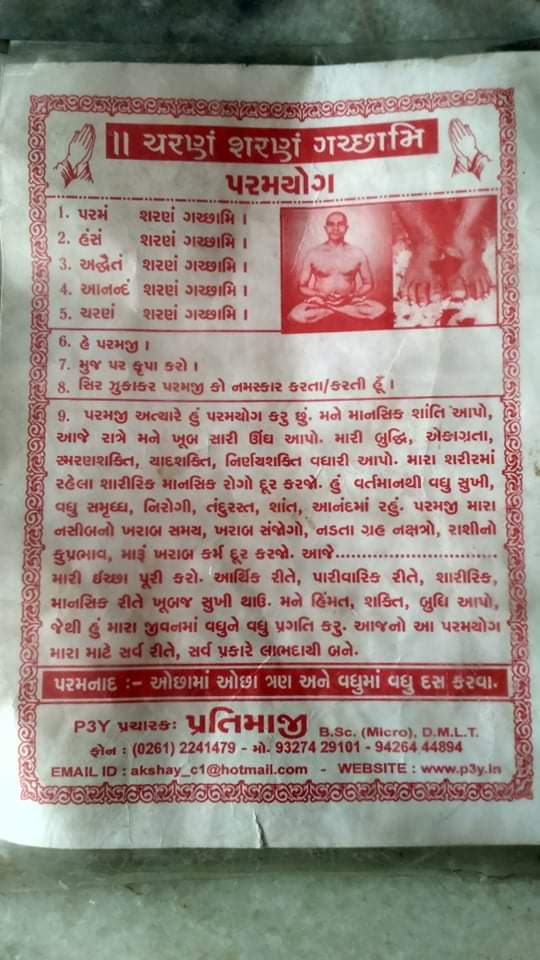 ॥ ચરણં શરણં ગચ્છામિ
પરમયોગ
1. પરમં શરણં ગચ્છામિ ।
2. હંસં શરણં ગચ્છામિ ।
3. અદ્વૈતં શરણં ગચ્છામિ ।
4. આનન્દં શરણં ગચ્છામિ ।
5. ચરણં શરણં ગચ્છામિ ।
6. હે પરમજી ।
7. મુજ પર કૃપા કરો ।
8. સિર ઝુકાકર પરમજી કો નમસ્કાર કરતા/કરતી હૂઁ ।
9. પરમજી અત્યારે હું પરમયોગ કરુ છું. મને માનસિક શાંતિ આપો,
આજે રાત્રે મને ખૂબ સારી ઊંઘ આપો. મારી બુદ્ધિ, એકાગ્રતા,
સ્મરણશક્તિ, યાદશક્તિ, નિર્ણયશક્તિ વધારી આપો. મારા શરીરમાં
રહેલા શારીરિક માનસિક રોગો દૂર કરજો. હું વર્તમાનથી વધુ સુખી,
વધુ સમૃધ્ધ, નિરોગી, તંદુરસ્ત, શાંત, આનંદમાં રહું. પરમજી મારા
નસીબનો ખરાબ સમય, ખરાબ સંજોગો, નડતા ગ્રહ નક્ષત્રો, રાશીનો
કુપ્રભાવ, મારૂં ખરાબ કર્મ દૂર કરજો. આજે..............................
મારી ઈચ્છા પૂરી કરો. આર્થિક રીતે, પારીવારિક રીતે, શારીરિક,
માનસિક રીતે ખૂબજ સુખી થાઉ. મને હિંમત, શક્તિ, બુધ્ધિ આપો,
જેથી હું મારા જીવનમાં વધુને વધુ પ્રગતિ કરુ. આજનો આ પરમયોગ
મારા માટે સર્વ રીતે, સર્વ પ્રકારે લાભદાયી બને.
પરમનાદ :- ઓછામાં ઓછા ત્રણ અને વધુમાં વધુ દસ કરવા.
P3Y પ્રચારક: પ્રતિમાજી B.Sc. (Micro), D.M.L.T.
ફોન : (0261) 2241479 - મો. 93274 29101 - 94264 44894
EMAIL ID : akshay_c1@hotmail.com - WEBSITE : www.p3y.in